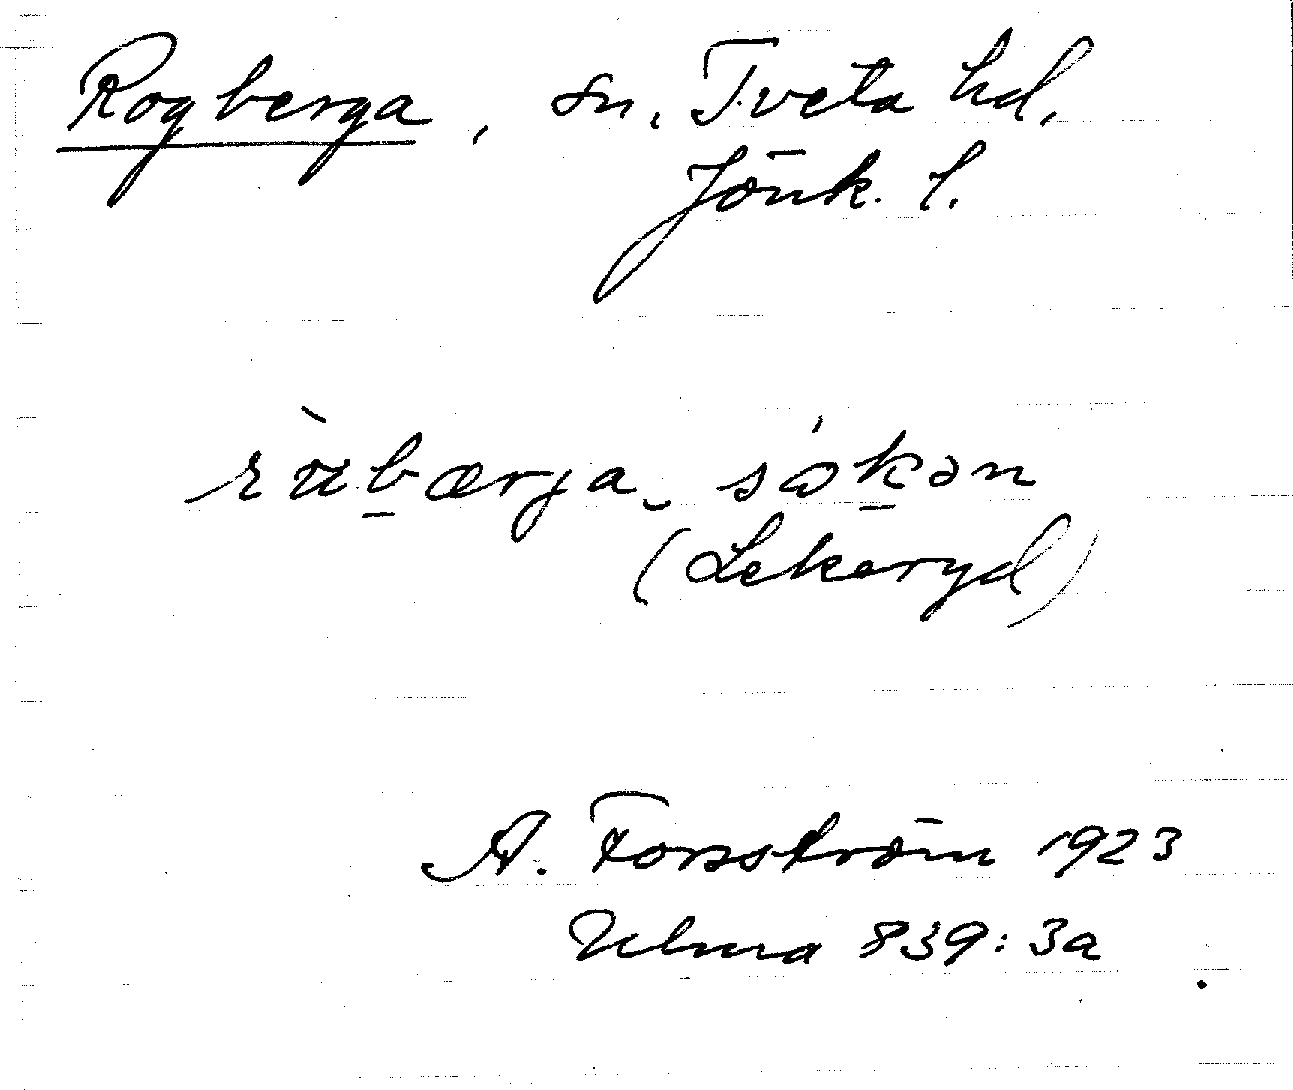 Rogberga, sn. Tveta hd.
Jönk. l.
rùbærja‿såkən
(Lekeryd)
A. Forsström 1923
Ulma 839:3a